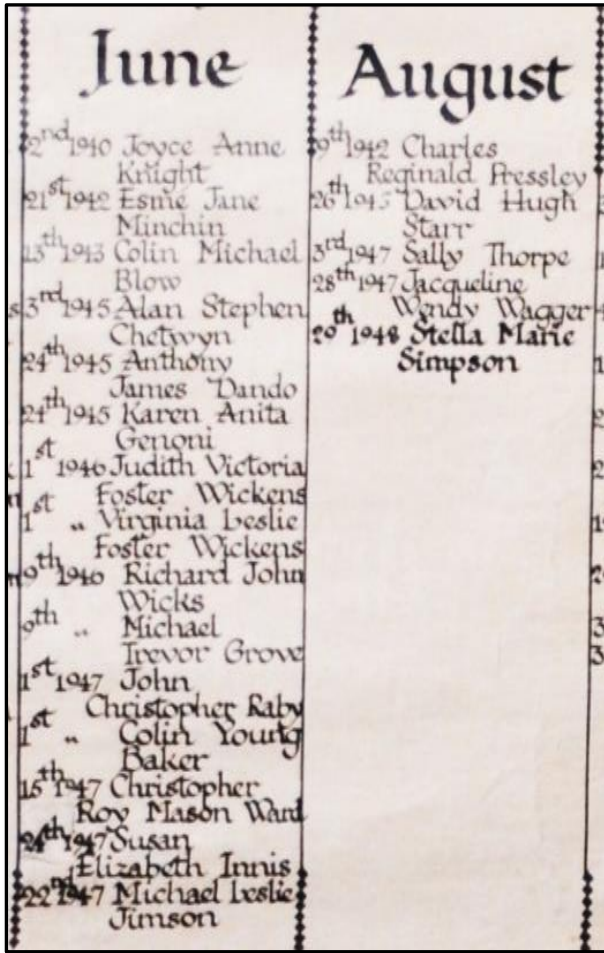 June
2nd 1940 Joyce Anne
Knight
21st 1942 Esmé Jane
Minchin
13th 1943 Colin Michael
Blow
3rd 1945 Alan Stephen
Chetwyn
24th 1945 Anthony
James Dando
24th 1945 Karen Anita
Genoni
1st 1946 Judith Victoria
Foster Wickens
1st " Virginia Leslie
Foster Wickens
9th 1946 Richard John
Wicks
9th " Michael
Trevor Grove
1st 1947 John
Christopher Raby
1st " Colin Young
Baker
15th 1947 Christopher
Roy Mason Ward
24th 1947 Susan
Elizabeth Innis
22nd 1947 Michael Leslie
Jimson
August
9th 1942 Charles
Reginald Pressley
26th 1943 David Hugh
Starr
3rd 1947 Sally Thorpe
28th 1947 Jacqueline
Wendy Wagger
29th 1948 Stella Marie
Simpson